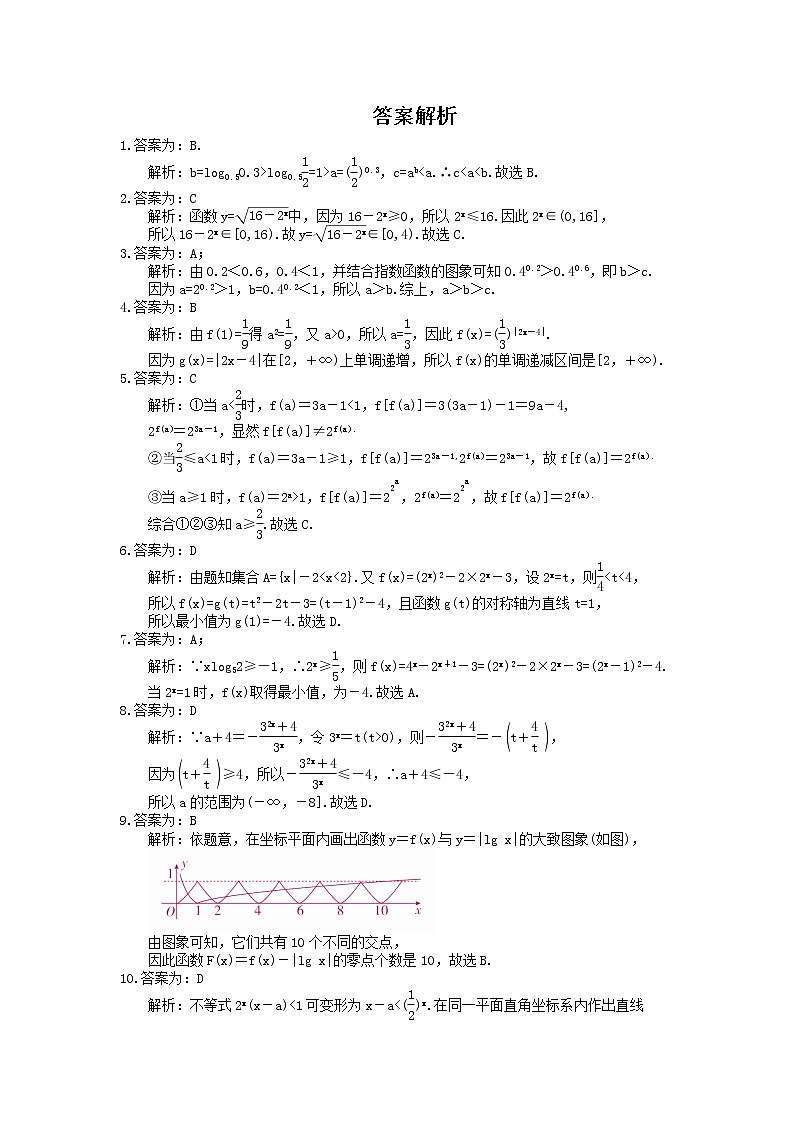 答案解析
1.答案为：B.
解析：b=log₀.₅0.3>log₀.₅\frac{1}{2}=1>a=(\frac{1}{2})^{0.3}，c=a^b<a.∴c<a<b.故选B.
2.答案为：C
解析：函数y=\sqrt{16－2^x}中，因为16－2^x≥0，所以2^x≤16.因此2^x∈(0,16]，
所以16－2^x∈[0,16).故y=\sqrt{16－2^x}∈[0,4).故选C.
3.答案为：A；
解析：由0.2＜0.6，0.4＜1，并结合指数函数的图象可知0.4^{0.2}＞0.4^{0.6}，即b＞c.
因为a=2^{0.2}＞1，b=0.4^{0.2}＜1，所以a＞b.综上，a＞b＞c.
4.答案为：B
解析：由f(1)=\frac{1}{9}得a^2=\frac{1}{9}，又a>0，所以a=\frac{1}{3}，因此f(x)=(\frac{1}{3})^{|2x－4|}.
因为g(x)=|2x－4|在[2，+∞)上单调递增，所以f(x)的单调递减区间是[2，+∞).
5.答案为：C
解析：①当a<\frac{2}{3}时，f(a)＝3a－1<1，f[f(a)]＝3(3a－1)－1＝9a－4,
2^{f(a)}＝2^{3a－1}，显然f[f(a)]≠2^{f(a)}.
②当\frac{2}{3}≤a<1时，f(a)＝3a－1≥1，f[f(a)]＝2^{3a－1}，2^{f(a)}＝2^{3a－1}，故f[f(a)]＝2^{f(a)}.
③当a≥1时，f(a)＝2^a>1，f[f(a)]＝2^{2^a}，2^{f(a)}＝2^{2^a}，故f[f(a)]＝2^{f(a)}.
综合①②③知a≥\frac{2}{3}.故选C.
6.答案为：D
解析：由题知集合A={x|－2<x<2}.又f(x)=(2^x)^2－2×2^x－3，设2^x=t，则\frac{1}{4}<t<4，
所以f(x)=g(t)=t^2－2t－3=(t－1)^2－4，且函数g(t)的对称轴为直线t=1，
所以最小值为g(1)=－4.故选D.
7.答案为：A；
解析：∵xlog₅2≥－1，∴2^x≥\frac{1}{5}，则f(x)=4^x－2^{x＋1}－3=(2^x)^2－2×2^x－3=(2^x－1)^2－4.
当2^x=1时，f(x)取得最小值，为－4.故选A.
8.答案为：D
解析：∵a＋4＝－\frac{3^{2x}＋4}{3^x}，令3^x＝t(t>0)，则－\frac{3^{2x}＋4}{3^x}＝－(t＋\frac{4}{t})，
因为(t＋\frac{4}{t})≥4，所以－\frac{3^{2x}＋4}{3^x}≤－4，∴a＋4≤－4，
所以a的范围为(－∞，－8].故选D.
9.答案为：B
解析：依题意，在坐标平面内画出函数y＝f(x)与y＝|lg x|的大致图象(如图)，
1 y
O 1 2 4 6 8 10 x
由图象可知，它们共有10个不同的交点，
因此函数F(x)＝f(x)－|lg x|的零点个数是10，故选B.
10.答案为：D
解析：不等式2^x(x－a)<1可变形为x－a<(\frac{1}{2})^x.在同一平面直角坐标系内作出直线